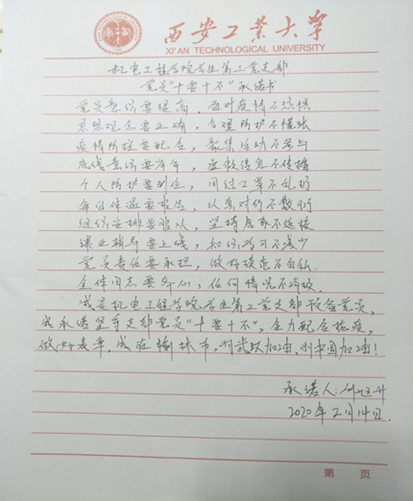 西安工业大学
XI'AN TECHNOLOGICAL UNIVERSITY
机电工程学院学生第三党支部
党员"十要十不"承诺书
党员意识要提高，面对疫情不恐惧
系统观念要正确，合理防护不慌张
疫情防控要配合，聚集活动不参与
底线意识要牢牢，虚假信息不传播
个人防护要到位，用过口罩不乱扔
每日体温要报告，认真对待不敷衍
组织安排要服从，坚持居家不返校
课业辅导要上线，知识学习不减少
党员责任要承担，做好模范不自私
全体同志要齐心，任何情况不消极
成是机电工程学院学生第三党支部预备党员，
成承诺坚守支部党员"十要十不"，全力配合抗疫，
做好表率，成在榆林市，为武汉加油，为中国加油！
承诺人：
2020年2月14日
第 页